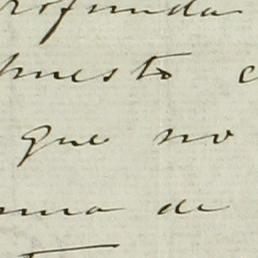 profunda
puesto c
que no
una de